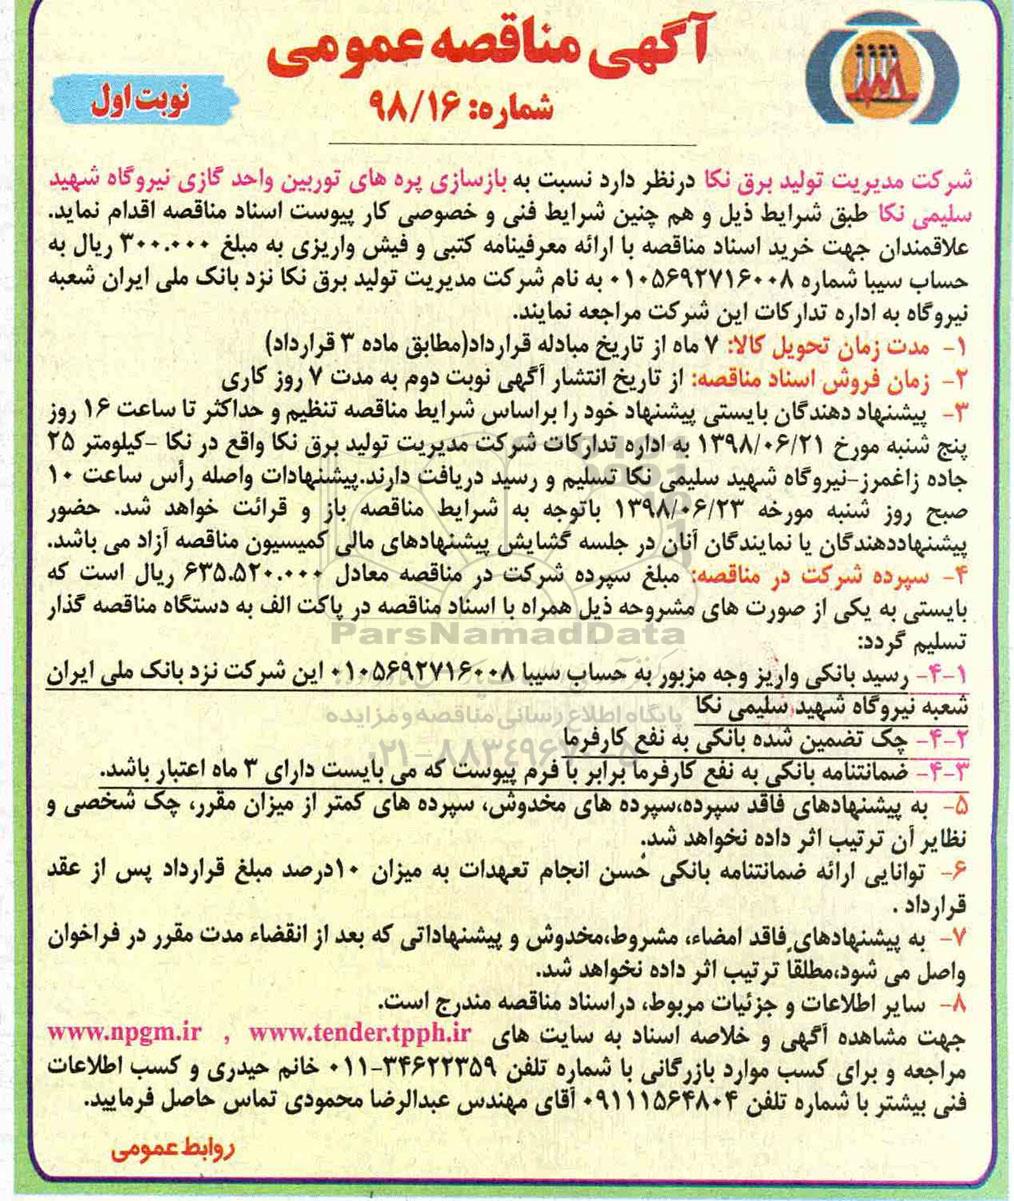 آگهی مناقصه عمومی
شماره: ۹۸/۱۶
نوبت اول
شرکت مدیریت تولید برق نکا درنظر دارد نسبت به بازسازی پره های توربین واحد گازی نیروگاه شهید
سلیمی نکا طبق شرایط ذیل و هم چنین شرایط فنی و خصوصی کار پیوست اسناد مناقصه اقدام نماید.
علاقمندان جهت خرید اسناد مناقصه با ارائه معرفینامه کتبی و فیش واریزی به مبلغ ۳۰۰.۰۰۰ ریال به
حساب سیبا شماره ۰۱۰۵۶۹۲۷۱۶۰۰۸ به نام شرکت مدیریت تولید برق نکا نزد بانک ملی ایران شعبه
نیروگاه به اداره تدارکات این شرکت مراجعه نمایند.
۱- مدت زمان تحویل کالا: ۷ ماه از تاریخ مبادله قرارداد(مطابق ماده ۳ قرارداد)
۲- زمان فروش اسناد مناقصه: از تاریخ انتشار آگهی نوبت دوم به مدت ۷ روز کاری
۳- پیشنهاد دهندگان بایستی پیشنهاد خود را براساس شرایط مناقصه تنظیم و حداکثر تا ساعت ۱۶ روز
پنج شنبه مورخ ۱۳۹۸/۰۶/۲۱ به اداره تدارکات شرکت مدیریت تولید برق نکا واقع در نکا -کیلومتر ۲۵
جاده زاغمرز-نیروگاه شهید سلیمی نکا تسلیم و رسید دریافت دارند.پیشنهادات واصله رأس ساعت ۱۰
صبح روز شنبه مورخه ۱۳۹۸/۰۶/۲۳ باتوجه به شرایط مناقصه باز و قرائت خواهد شد. حضور
پیشنهاددهندگان یا نمایندگان آنان در جلسه گشایش پیشنهادهای مالی کمیسیون مناقصه آزاد می باشد.
۴- سپرده شرکت در مناقصه: مبلغ سپرده شرکت در مناقصه معادل ۶۳۵.۵۲۰.۰۰۰ ریال است که
بایستی به یکی از صورت های مشروحه ذیل همراه با اسناد مناقصه در پاکت الف به دستگاه مناقصه گذار
ParsNamadData
تسلیم گردد:
۴-۱- رسید بانکی واریز وجه مزبور به حساب سیبا ۰۱۰۵۶۹۲۷۱۶۰۰۸ این شرکت نزد بانک ملی ایران
شعبه نیروگاه شهید سلیمی نکا
پایگاه اطلاع رسانی مناقصه و مزایده
۴-۲- چک تضمین شده بانکی به نفع کارفرما
۰۲۱-۸۸۳۴۹۶۷۰-۵
۴-۳- ضمانتنامه بانکی به نفع کارفرما برابر با فرم پیوست که می بایست دارای ۳ ماه اعتبار باشد.
۵- به پیشنهادهای فاقد سپرده،سپرده های مخدوش، سپرده های کمتر از میزان مقرر، چک شخصی و
نظایر آن ترتیب اثر داده نخواهد شد.
۶- توانایی ارائه ضمانتنامه بانکی حُسن انجام تعهدات به میزان ۱۰درصد مبلغ قرارداد پس از عقد
قرارداد .
۷- به پیشنهادهای فاقد امضاء، مشروط،مخدوش و پیشنهاداتی که بعد از انقضاء مدت مقرر در فراخوان
واصل می شود،مطلقاً ترتیب اثر داده نخواهد شد.
۸- سایر اطلاعات و جزئیات مربوط، دراسناد مناقصه مندرج است.
جهت مشاهده آگهی و خلاصه اسناد به سایت های www.npgm.ir , www.tender.tpph.ir
مراجعه و برای کسب موارد بازرگانی با شماره تلفن ۳۴۶۲۲۳۵۹-۰۱۱ خانم حیدری و کسب اطلاعات
فنی بیشتر با شماره تلفن ۰۹۱۱۱۵۶۴۸۰۴ آقای مهندس عبدالرضا محمودی تماس حاصل فرمایید.
روابط عمومی